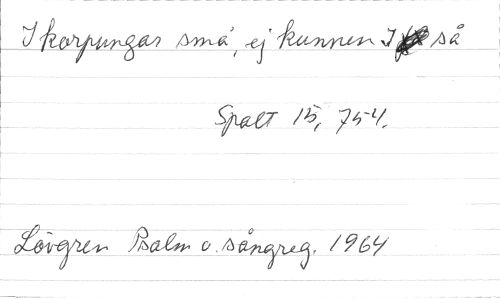 I korpungar små, ej kunnen I så
Spalt 15, 754.
Lövgren Psalm o. sångreg. 1964